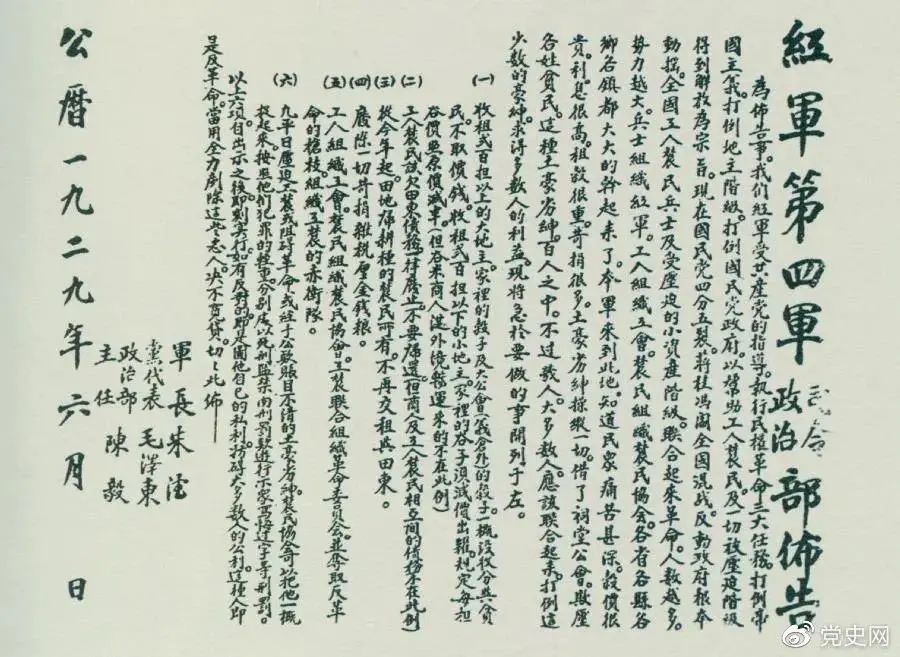 紅軍第四軍司令政治部佈告
為佈告事。我們紅軍受共產党的指導。執行民權革命三大任務。打倒帝
國主義。打倒地主階級。打倒國民党政府。以幫助工人農民及一切被壓迫階級
得到解放為宗旨。現在國民党四分五裂。蔣桂馮閻全國混战。反動政府根本
動摇。全國工人農民兵士及受壓迫的小資產階級。联合起來革命。人数越多。
势力越大。兵士組織紅軍。工人組織工會。農民組織農民協会。各省各縣各
鄉各鎮都大大的幹起來了。本軍來到此地。知道民衆痛苦甚深。穀價很
貴。利息很高。租穀很重。苛捐很多。土豪劣绅操縱一切。借了祠堂公會。欺壓
各姓貧民。這種土豪劣紳。百人之中。不过数人。大多数人應該联合起來。打倒這
少数的豪紳。求得多数人的利益。現將急於要做的事開列于左。
(一)收租弍百担以上的大地主。家裡的穀子及大公會(義倉外)的穀子。一概没收分與貧
民。不取價钱。收租弍百担以下的小地主。家裡的谷子須減價出糶。規定每担
谷價照原價減半。(但谷米商人從外境辦運来的不在此例)
(二)工人農民該欠田東債務。一律廢止。不要歸還。(但商人及工人農民相互間的債務不在此例)
(三)從今年起。田地歸耕種的農民所有。不再交租與田東。
(四)廢除一切苛捐雜税厘金钱粮。
(五)工人組織工會。農民組織農民協會。工農联合組織革命委員会。並奪取反革
命的槍枝。組織工農的赤衛隊。
(六)凡平日壓迫工農或阻碍革命。或经手公款賬目不清的土豪劣绅。農民協會可以把他一概
捉起來。按照他们犯罪的輕重。分别处以死刑監禁罰款遊行示衆写悔过字等刑罰。
以上六項。自出示之後。即刻实行。如有反對的。即是國他自己的私利。妨碍大多数人的公利。這種人即
是反革命。當用全力剷除這些恶人。决不寬貸。切切此佈
軍長 朱德
黨代表 毛澤東
政治部主任 陳毅
公曆一九二九年六月 日
党史网